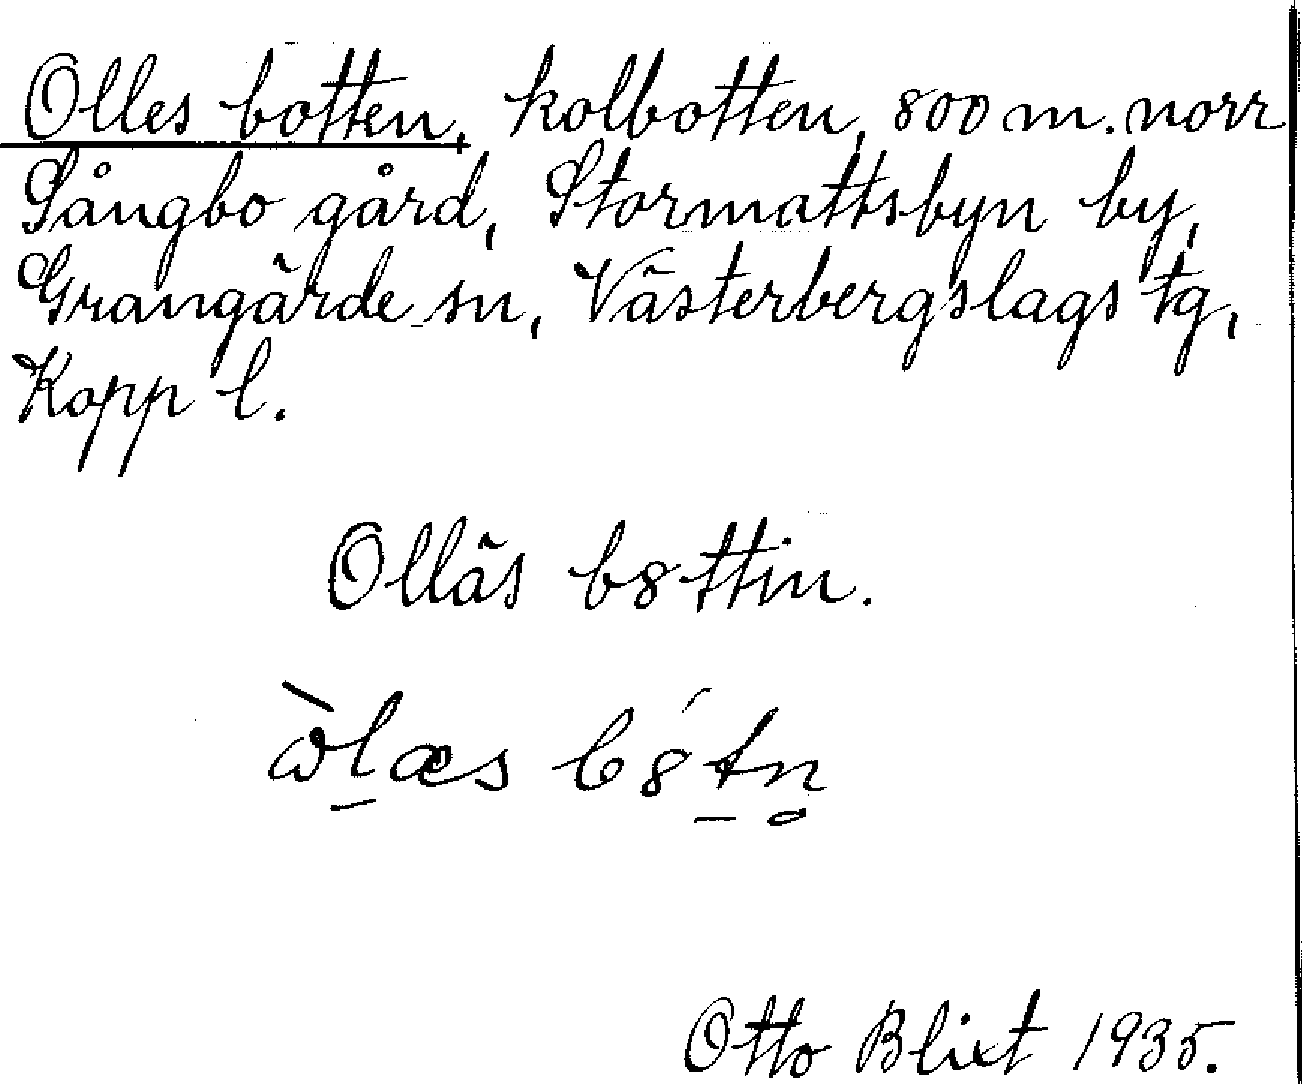 Olles botten, kolbotten, 800 m. norr
Sångbo gård, Stormattsbyn by,
Grangärde sn, Västerbergslags tg,
Kopp l.
Olläs b8ttin.
Otto Blixt 1935.